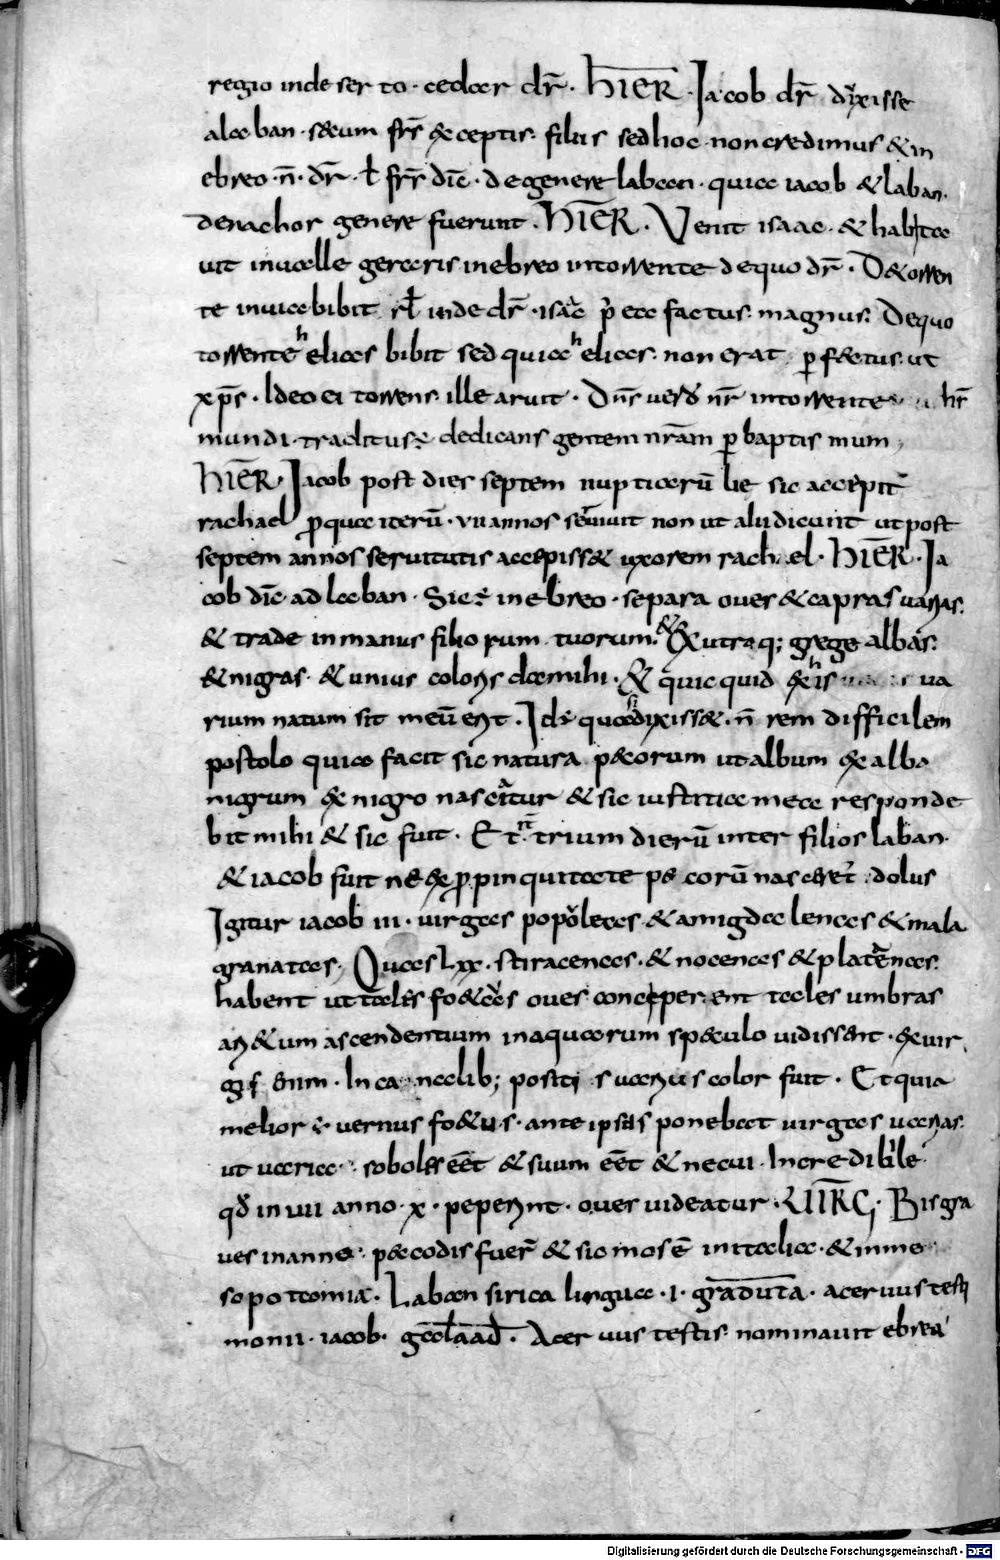 regio inde ser to · cedar dr̄ · hIER̄ · Jacob dr̄ dixisse
alaban · secum frs̄ exceptis filiis sed hoc non credimus & in
ebreo · n̄ · dr̄ · ł frr̄ dic̄ · de genere laban · quia iacob & laban ·
denachor genere fuerunt · hIER̄ · Venit isaac · & habita
uit in ualle geraris in ebreo in torrente de quo dr̄ · De torren
te in uia bibit ł inde dr̄ · isac p̄ ea factus magnus · De quo
torrente helias bibit sed quia helias non erat p fetus ut
xp̄s · Ideo ei torrens ille aruit · Dn̄s uero nr̄ in torrente hr̄
mundi traditus · dedicans gentem nr̄am p baptismum ,
hIER̄ · Jacob post dies septem nuptiarū lie sic accepit
rachael p qua iterū · vii annos seruiuit non ut alii dicunt ut post
septem annos seruitutis accepisset uxorem rachael · hIER̄ · Ja
cob dic̄ ad laban · Sic ÷ in ebreo · separa oues & capras uarias ·
& trade in manus filiorum tuorum · & ex utraq; grege albas
& nigras · & unius coloris da mihi · Et quicquid ex his ua
rium natum sit meū erit · Id ÷ quasi dixisset · n̄ rem difficilem
postolo quia facit sic natura pecorum ut album ex albo
nigrum ex nigro nascitur & sic iustitia mea responde
bit mihi & sic fuit · Et trium dierū inter filios laban ·
& iacob fuit ne ex propinquitate pecorū nasceret dolus
Igitur iacob iii · uirgas populeas & amigdalenas & mala
granatas · Quas lxx · stiracenas · & nocenas & platenas
habent ut tales foetos oues conciperent tales umbras
arietum ascendentium in aquarum speculo uidissent · ex uir
gis enim · In canalib; positis uarius color fuit · Et quia
melior ÷ uernus foetus · ante ipsas ponebat uirgas uarias ·
ut uaria · soboles eēt & suum eēt & necui · Incredibile
qd̄ in vii anno · x · peperint · oues uideatur · UIRG · Bis gra
ues in anno · pecodis fuer̄ & sic mos ē in italia · & in me
sopotamia · Laban sirica lingua · i · gradūta · aceruus testi
monii · iacob · galaad · Aceruus testis nominauit ebrea
Digitalisierung gefördert durch die Deutsche Forschungsgemeinschaft - DFG